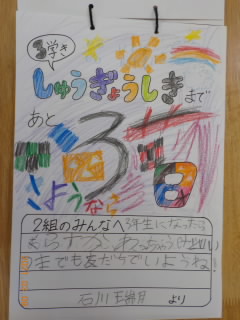 3学き
しゅうぎょうしきまで
あと
3日
さようなら
2組のみんなへ3年生になったら
くらすかわれっちゃう
までも友だちでいようね!
石川
より